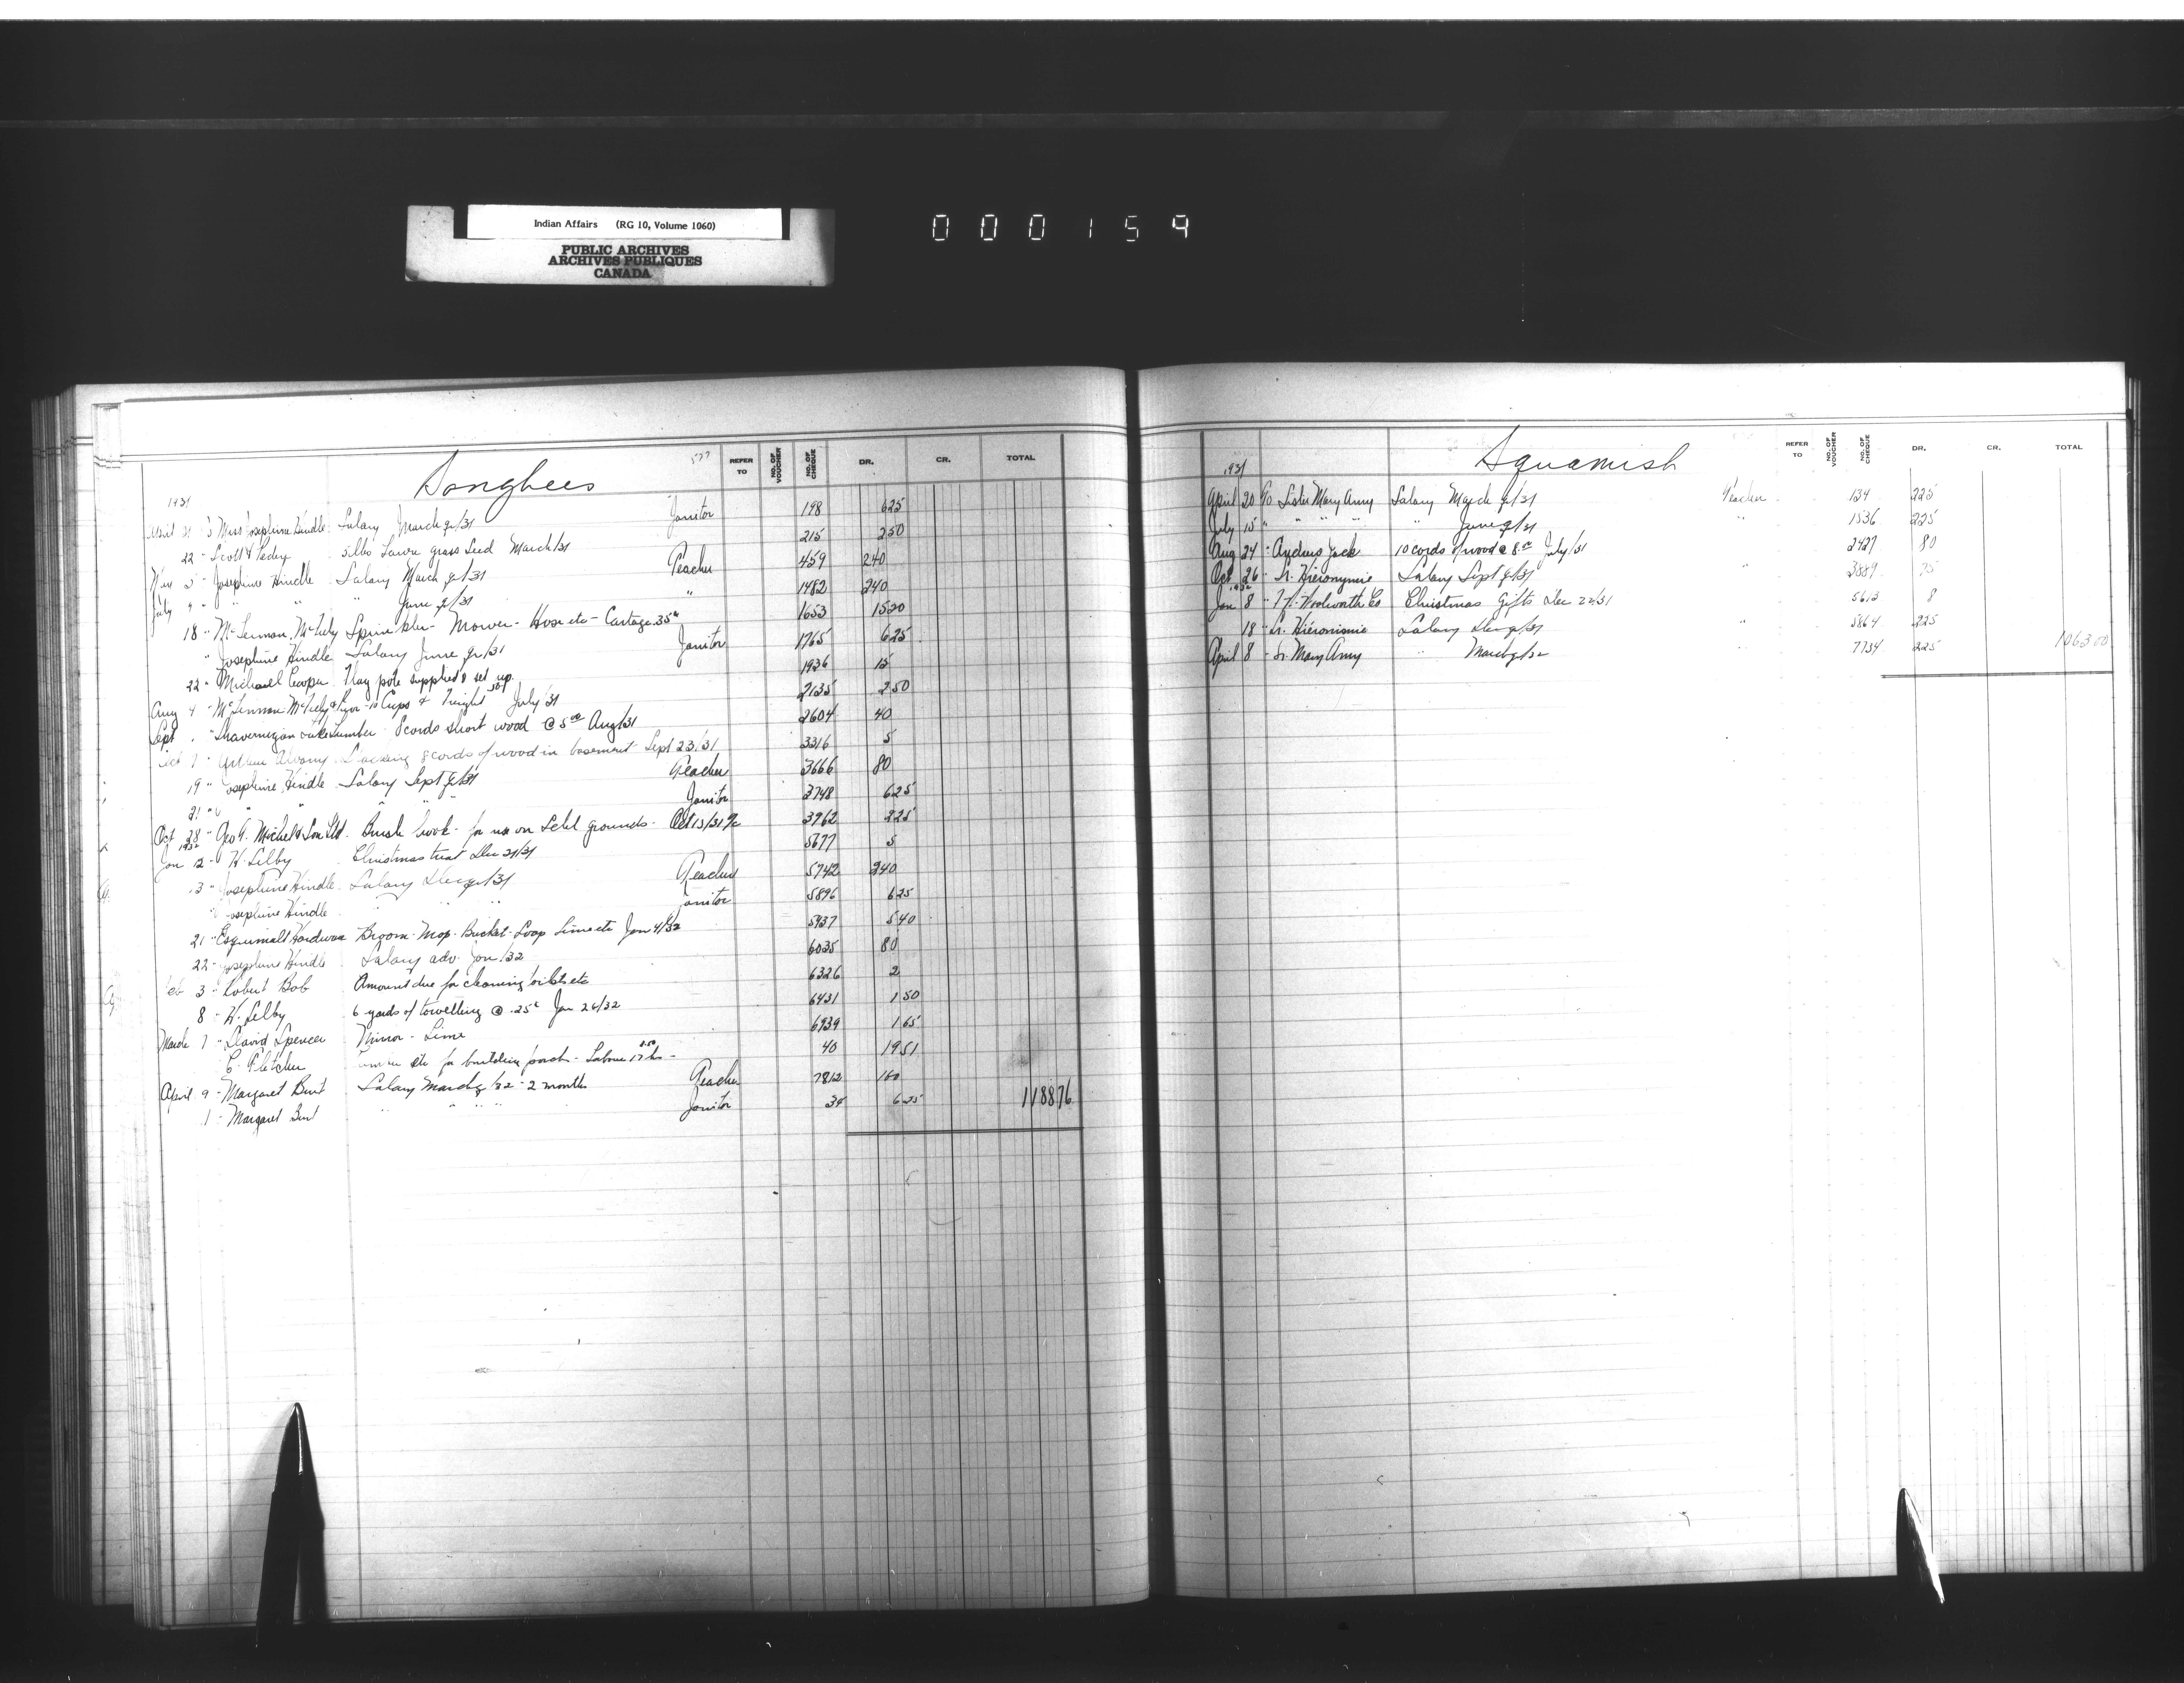 Indian Affairs (RG 10, Volume 1060)
PUBLIC ARCHIVES
ARCHIVES PUBLIQUES
CANADA
000159
Songhees
REFER TO NO. OF VOUCHER NO. OF CHEQUE DR. CR. TOTAL
1931
April 21 Miss Josephine Hindle Salary March qr/31 Janitor 198 6 25
22 " Scott & Peden 5 lbs Lawn Grass Seed March/31 215 2 50
5 " Josephine Hindle Salary March qr/31 Teacher 459 240
July 9 " " " June qr/31 " 1482 240
18 " McLennan, McFeely Sprinkler - Mower - Hose etc - Cartage 35c 1653 15 20
" Josephine Hindle Salary June qr/31 Janitor 1765 6 25
22 " Michael Cooper Flag pole supplied & set up 1936 15
Aug 4 " McLennan McFeely & Prior 10 Cups & Freight July/31 2135 2 50
Sept " Lumber 8 cords short wood @ 5.00 Aug/31 2604 40
Oct 7 " 8 cords of wood in basement Sept 23/31 3316 5
19 " Josephine Hindle Salary Sept qr/31 Teacher 3666 80
21 " " " Janitor 3748 6 25
Oct 28 " Geo A. Michel & Son Ltd. Brush hook - for use on Schl grounds - Oct 13/31 3962 2 25
1932
Jan 2 " H. Selby Christmas treat Dec 31/31 5677 5
13 " Josephine Hindle Salary Dec qr/31 Teacher 5742 240
" Josephine Hindle " " Janitor 5896 6 25
21 " Esquimalt Hardware Broom - Mop - Bucket - Soap Lime etc Jan 4/32 5937 5 40
22 " Josephine Hindle Salary adv. Jan/32 6035 80
Feb 3 " Robert Bob Amount due for cleaning toilets etc 6326 2
8 " H. Selby 6 yards of towelling @ .25c Jan 26/32 6431 1 50
March 7 " David Spencer Mirror - Lime 6939 1 65
C. Fletcher etc for building porch - Labour 17 hrs - 40 19 51
April 9 " Margaret Burt Salary March qr/32 - 2 months Teacher 7812 160
1 " Margaret Burt " " " " Janitor 34 6 25 1188 76
Squamish
REFER TO NO. OF VOUCHER NO. OF CHEQUE DR. CR. TOTAL
1931
April 20 To Sister Mary Amy Salary March qr/31 Teacher 134 225
July 15 " " " " " June qr/31 " 1536 225
Aug 24 " Andrew Jack 10 cords of wood @ 8.00 July/31 2427 80
Oct 26 " Sr. Hieronymie Salary Sept qr/31 3889 75
1932
Jan 8 " F. W. Woolworth Co Christmas Gifts Dec 22/31 5613 8
18 " Sr. Hieronimie Salary Dec qr/31 " 5864 225
April 8 " Sr. Mary Amy " March qr/32 " 7734 225 1063 00